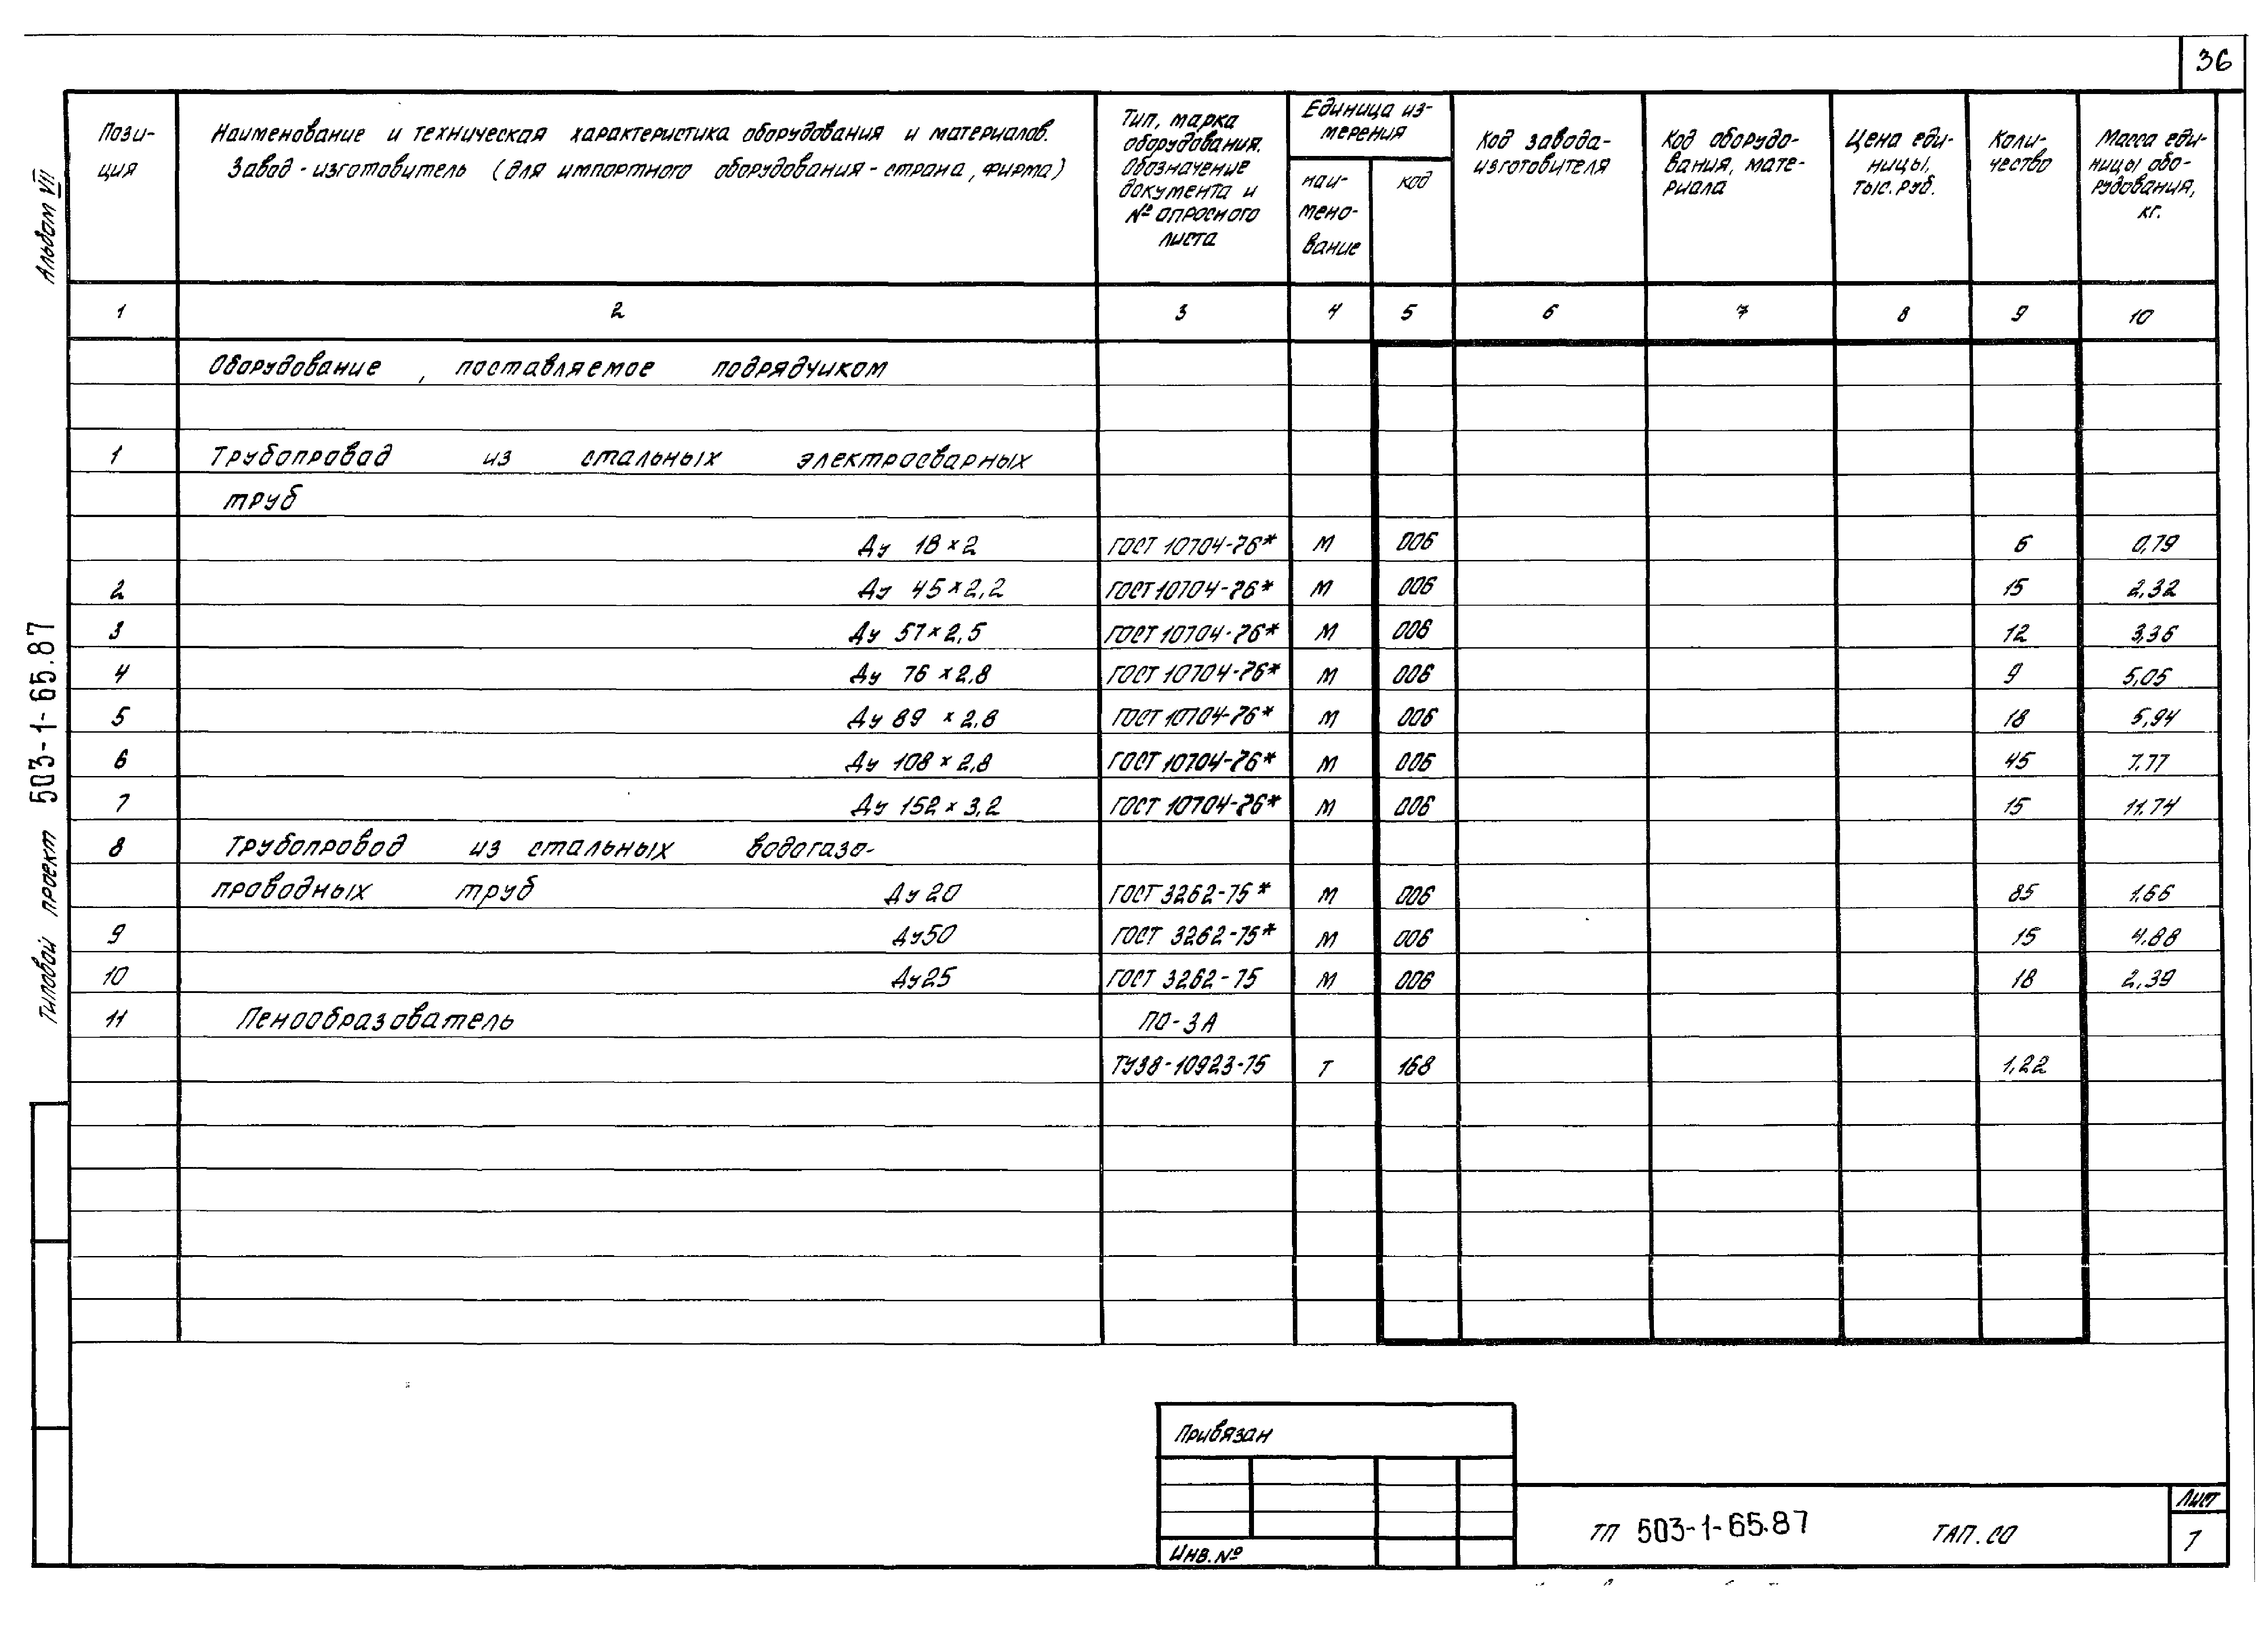 36
Альбом VII
Типовой проект 503-1-65.87
Пози-
ция
Наименование и техническая характеристика оборудования и материалов.
Завод-изготовитель (для импортного оборудования-страна, фирма)
Тип, марка
оборудования.
Обозначение
документа и
№ опросного
листа
Единица из-
мерения
наи-
мено-
вание
код
Код завода-
изготовителя
Код оборудо-
вания, мате-
риала
Цена еди-
ницы,
тыс. руб.
Коли-
чество
Масса еди-
ницы обо-
рудования,
кг.
1 2 3 4 5 6 7 8 9 10
Оборудование, поставляемое подрядчиком
1 Трубопровод из стальных электросварных
труб
Ду 18×2 ГОСТ 10704-76* М 006 6 0,79
2 Ду 45×2,2 ГОСТ 10704-76* М 006 15 2,32
3 Ду 57×2,5 ГОСТ 10704-76* М 006 12 3,36
4 Ду 76×2,8 ГОСТ 10704-76* М 006 9 5,05
5 Ду 89×2,8 ГОСТ 10704-76* М 006 18 5,94
6 Ду 108×2,8 ГОСТ 10704-76* М 006 45 7.77
7 Ду 152×3,2 ГОСТ 10704-76* М 006 15 11.74
8 Трубопровод из стальных водогазо-
проводных труб Ду 20 ГОСТ 3262-75* М 006 85 1,66
9 Ду50 ГОСТ 3262-75* М 006 15 4.88
10 Ду25 ГОСТ 3262-75 М 006 18 2,39
11 Пенообразователь ПО-3А
ТУ38-10923-75 Т 168 1,22
Привязан
Инв.№
ТП 503-1-65.87 ТАП.СО
Лист
7